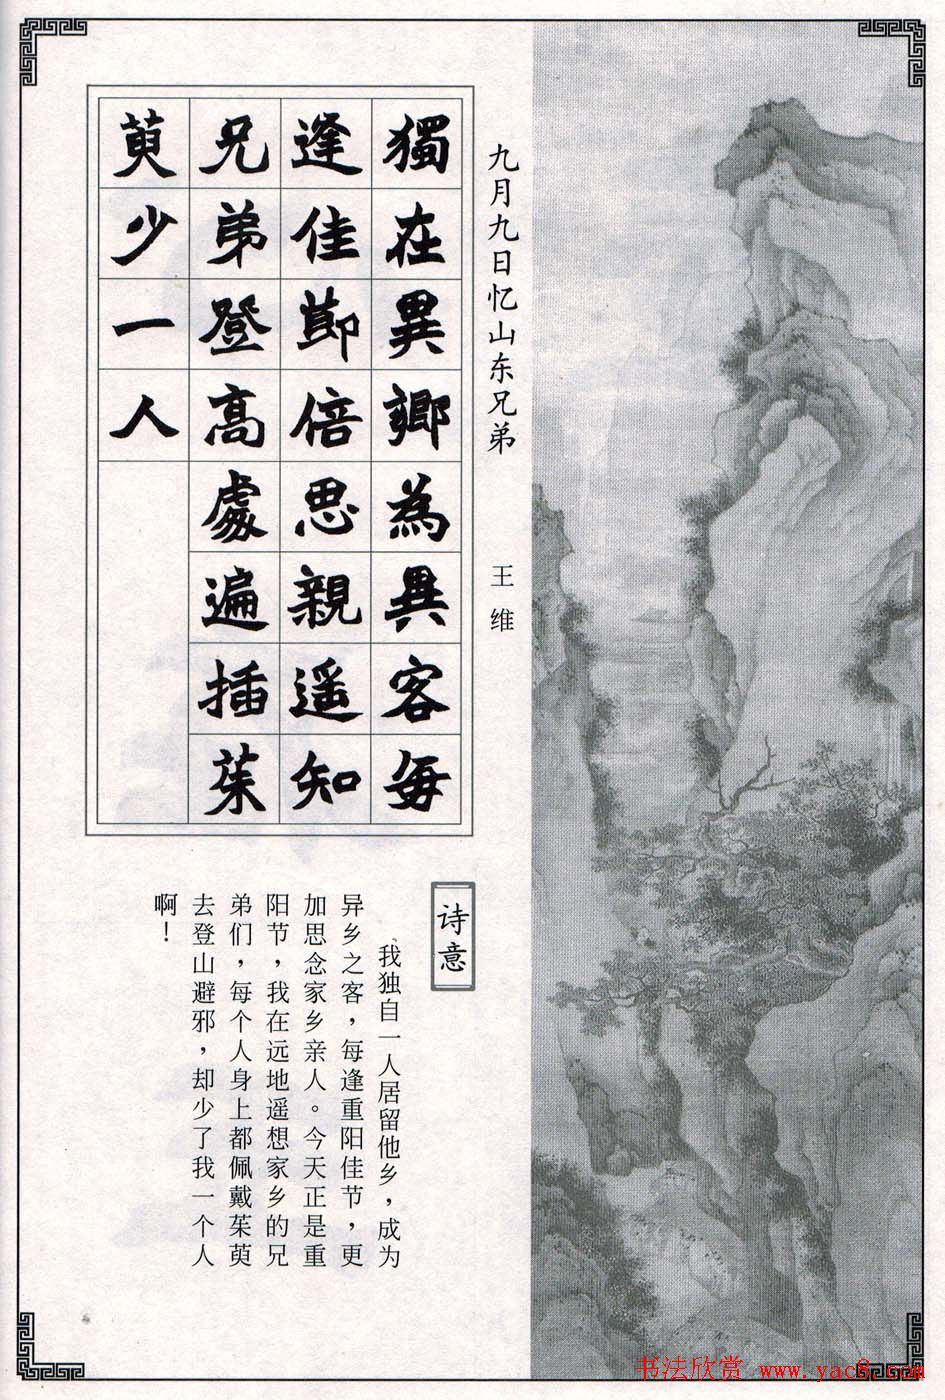 九月九日忆山东兄弟
王维
獨在異鄉為異客每
逢佳節倍思親遥知
兄弟登高處遍插茱
萸少一人
诗意
我独自一人居留他乡，成为
异乡之客，每逢重阳佳节，更
加思念家乡亲人。今天正是重
阳节，我在远地遥想家乡的兄
弟们，每个人身上都佩戴茱萸
去登山避邪，却少了我一个人
啊！
书法欣赏 www.yac8.com